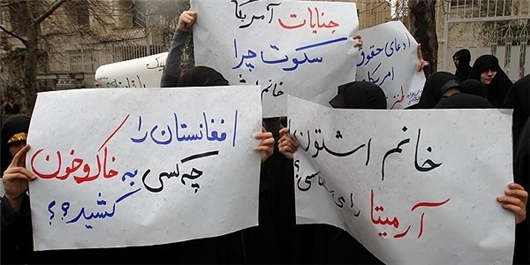 جنایات آمریکا
سکوت چرا
خانم
ادعای حقوق
امریکا
طنز
افغانستان را
چه کسی به خاک و خون
کشید؟؟
خانم اشتون
آرمیتا را